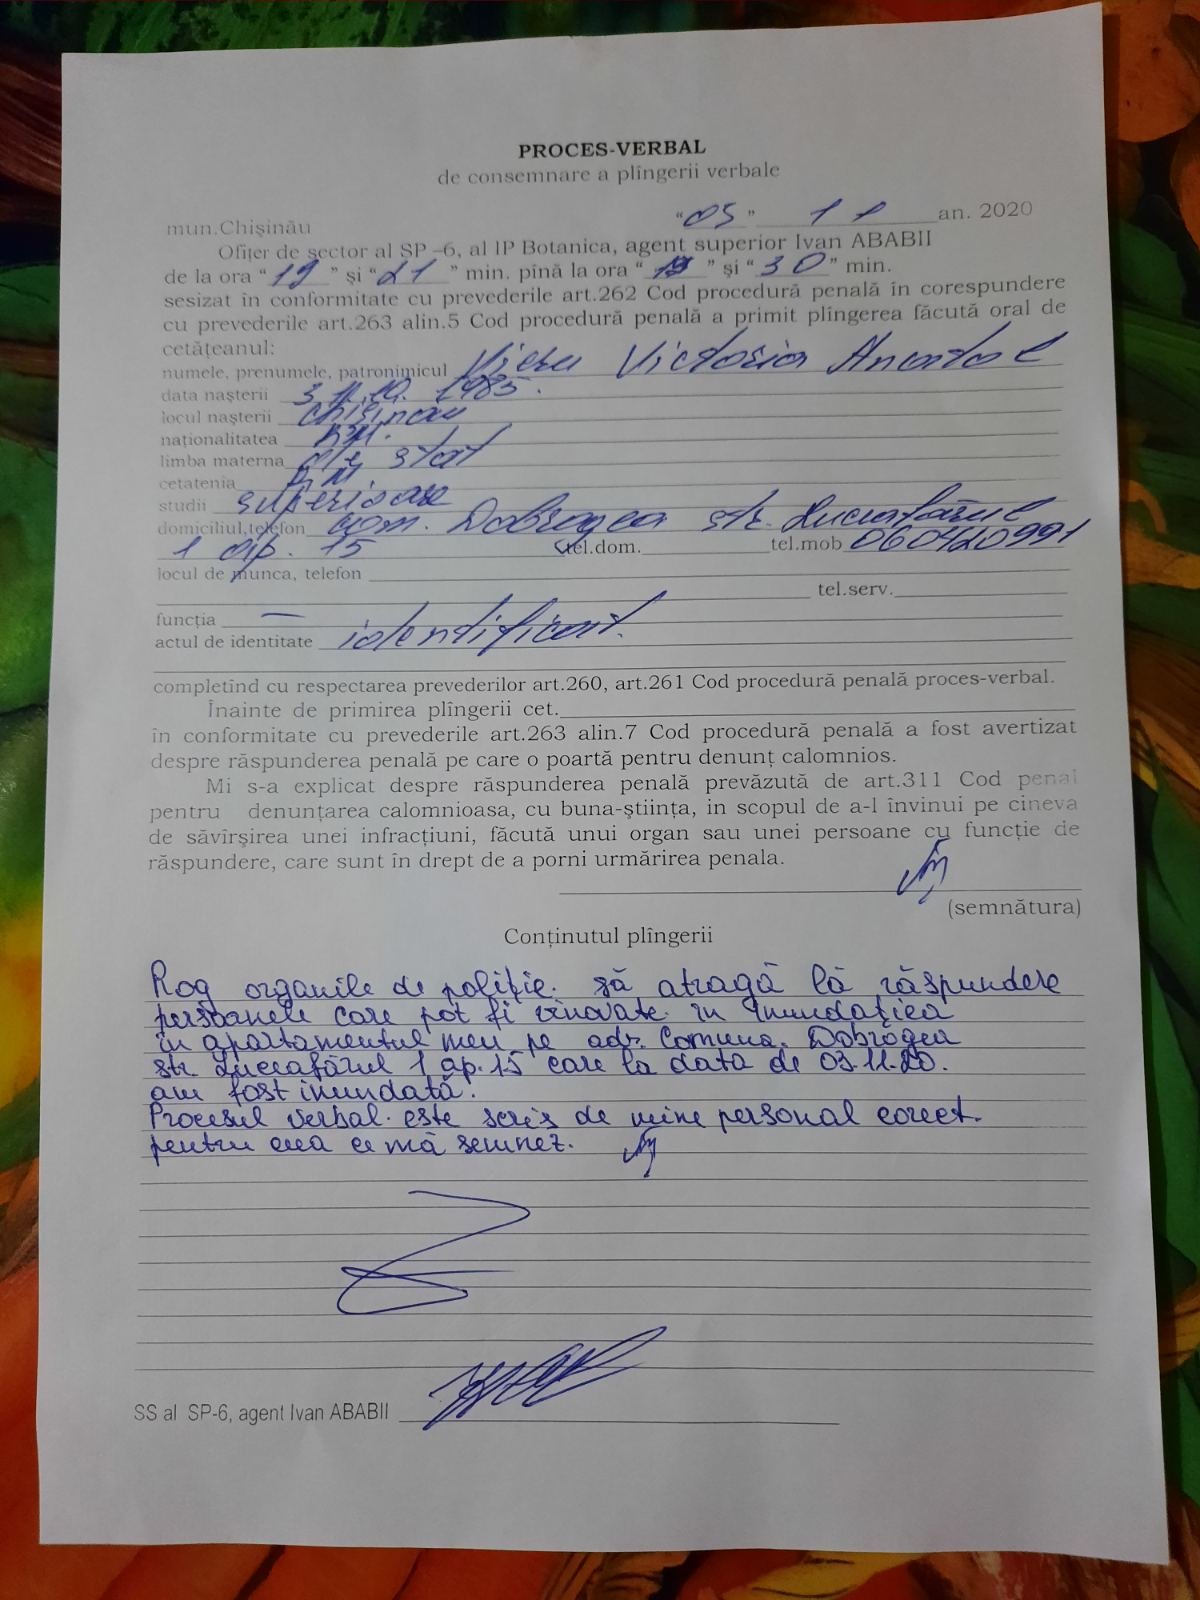 PROCES-VERBAL
de consemnare a plîngerii verbale
mun.Chişinău "05" 11 an. 2020
Ofiţer de sector al SP –6, al IP Botanica, agent superior Ivan ABABII
de la ora "19" şi "21" min. pînă la ora "19" şi "30" min.
sesizat în conformitate cu prevederile art.262 Cod procedură penală în corespundere
cu prevederile art.263 alin.5 Cod procedură penală a primit plîngerea făcută oral de
cetăţeanul:
numele, prenumele, patronimicul Victoria Anatol
data naşterii 1985.
locul naşterii Chişinău
naţionalitatea
limba materna de stat
cetatenia RM
studii superioare
domiciliul,telefon com. Dobrogea str. Luceafărul
1 ap. 15 tel.dom. tel.mob 060420991
locul de munca, telefon
tel.serv.
funcţia —
actul de identitate identificat.
completînd cu respectarea prevederilor art.260, art.261 Cod procedură penală proces-verbal.
Înainte de primirea plîngerii cet.
în conformitate cu prevederile art.263 alin.7 Cod procedură penală a fost avertizat
despre răspunderea penală pe care o poartă pentru denunţ calomnios.
Mi s-a explicat despre răspunderea penală prevăzută de art.311 Cod penal
pentru denunţarea calomnioasa, cu buna-ştiinţa, in scopul de a-l învinui pe cineva
de săvîrşirea unei infracţiuni, făcută unui organ sau unei persoane cu funcţie de
răspundere, care sunt în drept de a porni urmărirea penala.
(semnătura)
Conţinutul plîngerii
Rog organile de poliţie. să atragă lă răspundere
persoanele care pot fi vinovate în inundaţiea
în apartamentul meu pe adr. Comuna. Dobrogea
str Luceafărul 1 ap.15 care la data de 03.11.20.
am fost inundată.
Procesul verbal. este scris de mine personal corect.
pentru ceea ce mă semnez.
SS al SP-6, agent Ivan ABABII